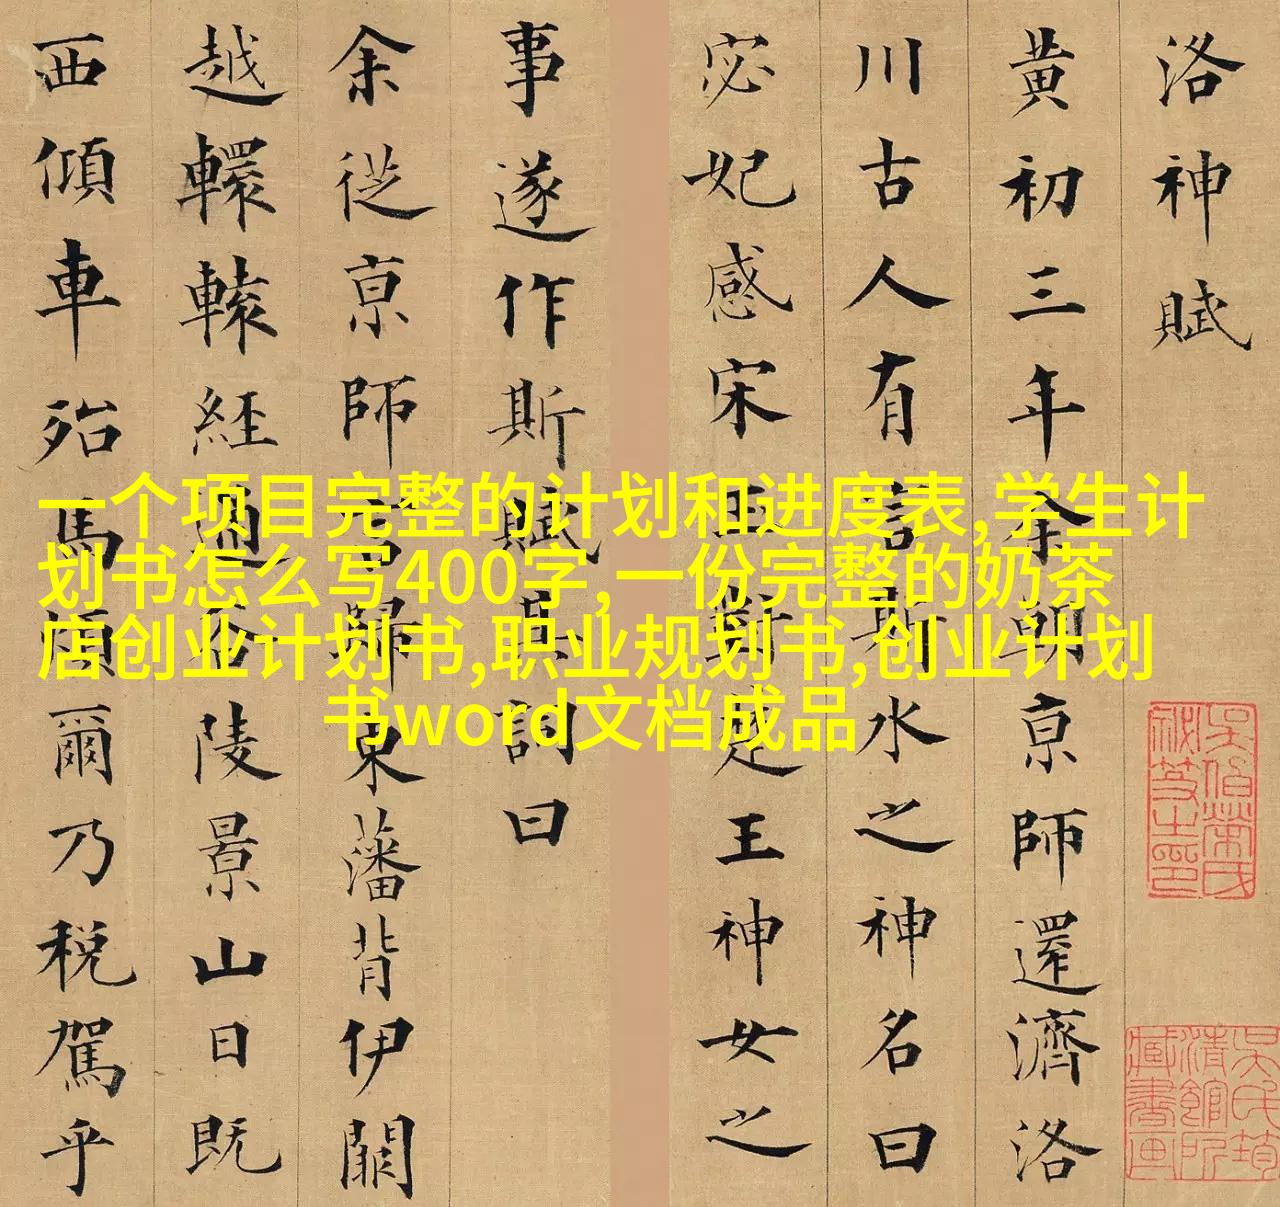 洛神賦
黄初三年余朝亰師還濟洛
川古人有言斯水之神名曰
宓妃感宋玉對楚王神女之
事遂作斯賦其詞曰
余從亰師言歸東藩背伊闕
越轘轅經通谷陵景山日既
西傾車殆馬煩爾乃稅駕乎
一个项目完整的计划和进度表,学生计
划书怎么写400字,一份完整的奶茶
店创业计划书,职业规划书,创业计划
书word文档成品
吳氏筠
清館所
藏書画